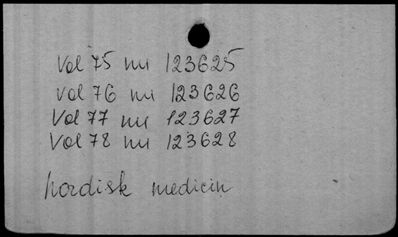 Vol 75 nu 123625
Vol 76 nu 123626
Vol 77 nu 123627
Vol 78 nu 123628
Nordisk medicin